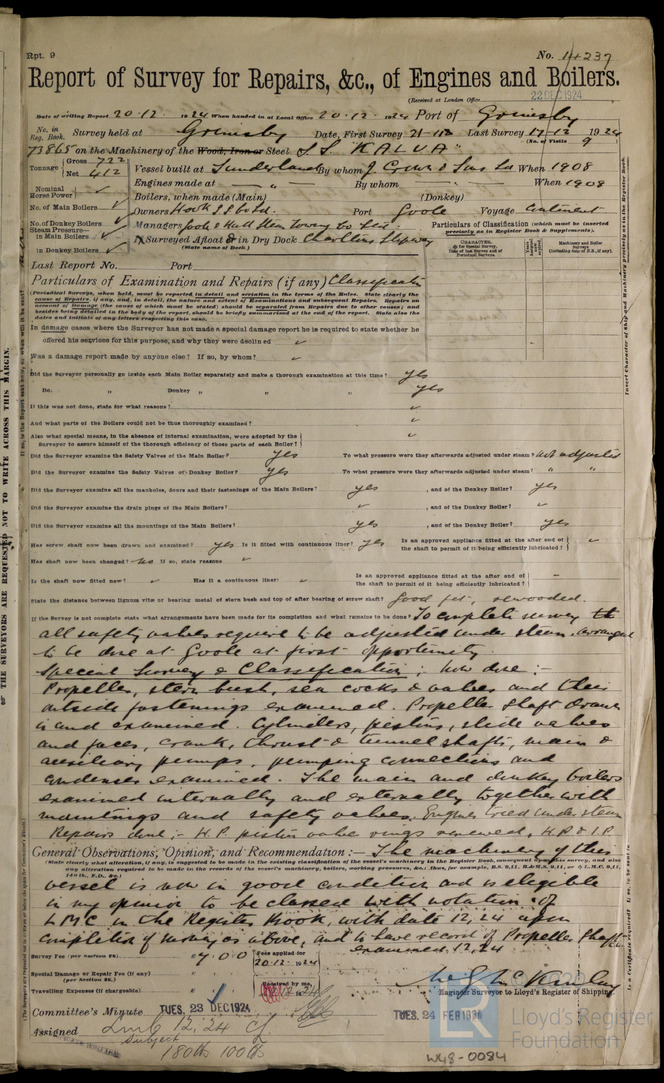 Rpt. 9
No. 14237
Report of Survey for Repairs, &c., of Engines and Boilers.
(Received at London Office 22 DEC 1924
Date of writing Report 20-12- 1924 When handed in at Local Office 20-12- 1924 Port of Grimsby
No. in Reg. Book. Survey held at Grimsby Date, First Survey 21-11- Last Survey 17-12 1924
(No. of Visits 9
73865 on the Machinery of the Wood, Iron or Steel S.S. "KALUA"
Tonnage Gross 722 Net 412
Vessel built at Sunderland By whom J. Crown & Sons Ld When 1908
Engines made at " By whom " When 1908
Nominal Horse Power
Boilers, when made (Main) (Donkey)
No. of Main Boilers
Owners Port Goole Voyage Continent
No. of Donkey Boilers
Managers Goole & Hull Steam Towing Co Ltd
Steam Pressure in Main Boilers
in Donkey Boilers
If Surveyed Afloat or in Dry Dock Slipway
(State name of Dock.)
Particulars of Classification (which must be inserted precisely as in Register Book & Supplements).
Last Report No. Port
Particulars of Examination and Repairs (if any) Classification
(Periodical Surveys, when held, must be reported in detail and seriatim in the terms of the Rules. State clearly the cause of Repairs, if any, and, in detail, the nature and extent of Examinations and subsequent Repairs.
In damage cases where the Surveyor has not made a special damage report he is required to state whether he
offered his services for this purpose, and why they were declined
Was a damage report made by anyone else? If so, by whom?
Did the Surveyor personally go inside each Main Boiler separately and make a thorough examination at this time? yes
Do. " Donkey " " " yes
If this was not done, state for what reasons?
And what parts of the Boilers could not be thus thoroughly examined?
Also what special means, in the absence of internal examination, were adopted by the
Surveyor to assure himself of the thorough efficiency of those parts of each Boiler?
Did the Surveyor examine the Safety Valves of the Main Boiler? yes To what pressure were they afterwards adjusted under steam? not adjusted
Did the Surveyor examine the Safety Valves of Donkey Boiler? yes To what pressure were they afterwards adjusted under steam? " "
Did the Surveyor examine all the manholes, doors and their fastenings of the Main Boilers? yes , and of the Donkey Boiler? yes
Did the Surveyor examine the drain plugs of the Main Boilers? , and of the Donkey Boiler?
Did the Surveyor examine all the mountings of the Main Boilers? yes , and of the Donkey Boiler? yes
Has screw shaft now been drawn and examined? yes Is it fitted with continuous liner? yes Is an approved appliance fitted at the after end of
the shaft to permit of it being efficiently lubricated?
Has shaft now been changed? no If so, state reasons
Is the shaft now fitted new? Has it a continuous liner? Is an approved appliance fitted at the after end of
the shaft to permit of it being efficiently lubricated?
State the distance between lignum vitæ or bearing metal of stern bush and top of after bearing of screw shaft? Good fit, rewooded.
If the Survey is not complete state what arrangements have been made for its completion and what remains to be done? To complete survey the
all safety valves require to be adjusted under steam, arranged
to be done at Goole at first opportunity.
Special Survey & Classification; now done:-
Propeller, stern bush, sea cocks & valves and their
outside fastenings examined. Propeller shaft drawn
in and examined. Cylinders, pistons, slide valves
and faces, crank, thrust & tunnel shafts, main &
auxiliary pumps, pumping connections and
condenser examined. The main and donkey boilers
examined internally and externally together with
mountings and safety valves. Engines tried under steam
Repairs done:- H.P. piston valve rings renewed, H.P. & I.P.
General Observations, Opinion, and Recommendation:— The machinery of this
vessel is now in good condition and is eligible
in my opinion to be classed with notation of
LMC in the Register Book, with date 12,24 upon
completion of survey as above, and to have record of Propeller shaft
examined 12,24
Survey Fee (per Section 28) 7.0.0 Fees applied for 20.12.1924
Special Damage or Repair Fee (if any)
(per Section 28.)
Travelling Expenses (if chargeable) Received by me,
Engineer Surveyor to Lloyd's Register of Shipping.
Committee's Minute TUES. 23 DEC 1924
TUES. 24 FEB 1925
Assigned LMC 12,24 CL
Subject
180lb 100lb
Lloyd's Register
Foundation
W48-0084
THE SURVEYORS ARE REQUESTED NOT TO WRITE ACROSS THIS MARGIN.